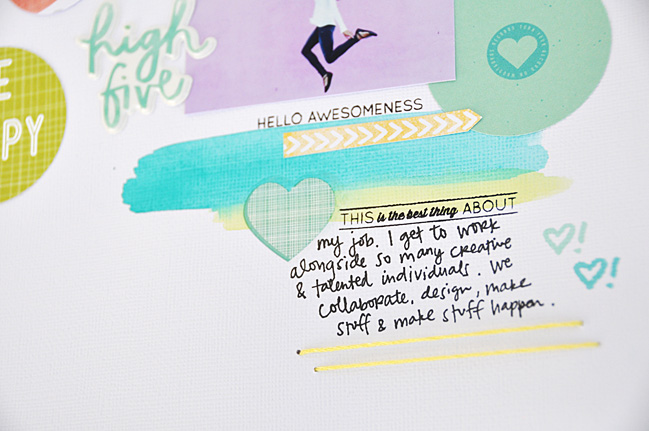 high
five
E
PPY
HELLO AWESOMENESS
THIS is the best thing ABOUT
my job. I get to work
alongside so many creative
& talented individuals. We
collaborate, design, make
stuff & make stuff happen.
!
!